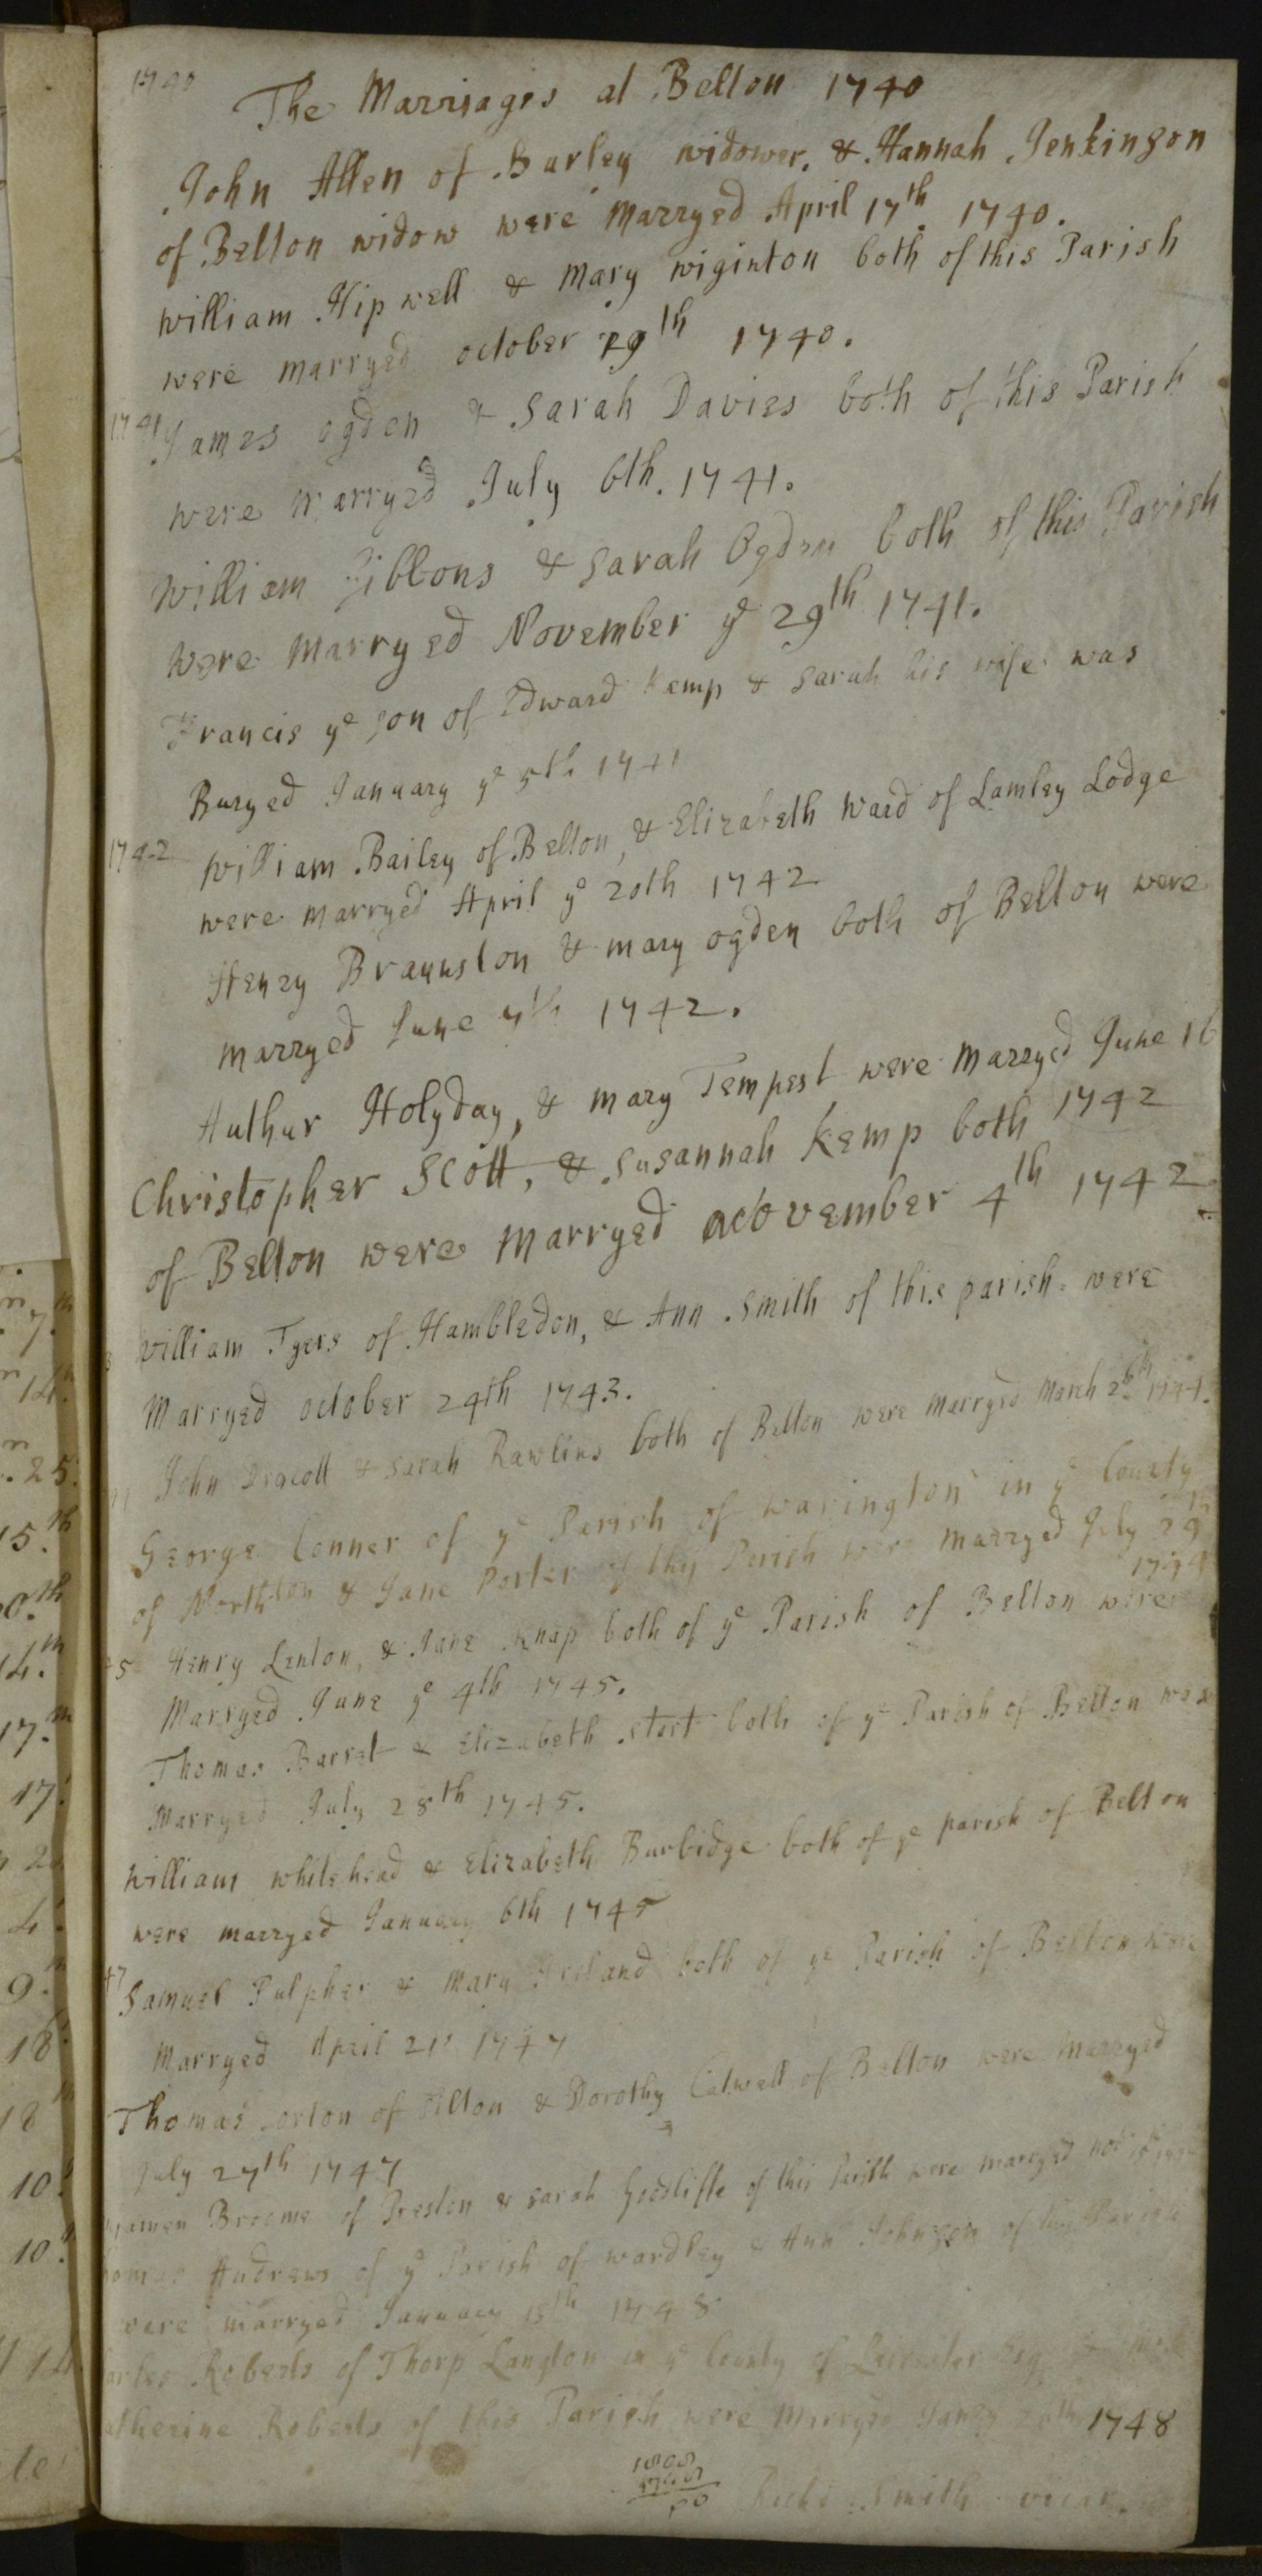 1740
The Marriages at Belton 1740
John Allen of Burley widower, & Hannah Jenkinson
of Belton widow were Marryed April 17th 1740.
William Hipwell & Mary Wiginton both of this Parish
were marryed october 29th 1740.
1741 James ogden & Sarah Davies both of this Parish
were Marryed July 6th. 1741.
William Gibbons & Sarah Ogden both of this Parish
were Marryed November ye 29th 1741.
Francis ye son of Edward Kemp & Sarah his wife was
Buryed January ye 5th 1741
1742 William Bailey of Belton, & Elizabeth Ward of Lamley Lodge
were marryed April ye 20th 1742
Henry Braunston & mary ogden both of Belton were
marryed June 7th 1742.
Authur Holyday, & mary Tempest were Marryed June 16
1742
Christopher Scott, & Susannah Kemp both
of Belton were Marryed November 4th 1742
William Tyers of Hambledon, & Ann Smith of this parish were
Marryed october 24th 1743.
John Dracott & Sarah Rawlins both of Belton were marryed March 26th 1744.
George Conner of ye Parish of warington in ye County
of Northton & Jane Porter of this Parish were marryed July 29th
1744
45 Henry Lenton, & Jane Knap both of ye Parish of Belton were
Marryed June ye 4th 1745.
Thomas Barret & Elizabeth both of ye Parish of Belton was
Marryed July 28th 1745.
William whitehead & Elizabeth Burbidge both of ye parish of Belton
were marryed January 6th 1745
47 Samuel Pulpher & Mary Ireland both of ye Parish of Belton were
Marryed April 21st 1747
Thomas orton of & Dorothy Catwell of Belton were Marryed
July 27th 1747
Broome of Preston & Sarah of this Parish were marryed
Andrews of ye Parish of wardley & Ann Johnson of this Parish
were marryed January 18th 1748
Roberts of Thorp Langton in ye County of Leicester
Roberts of this Parish were Marryed 1748
1808
Smith vicar.